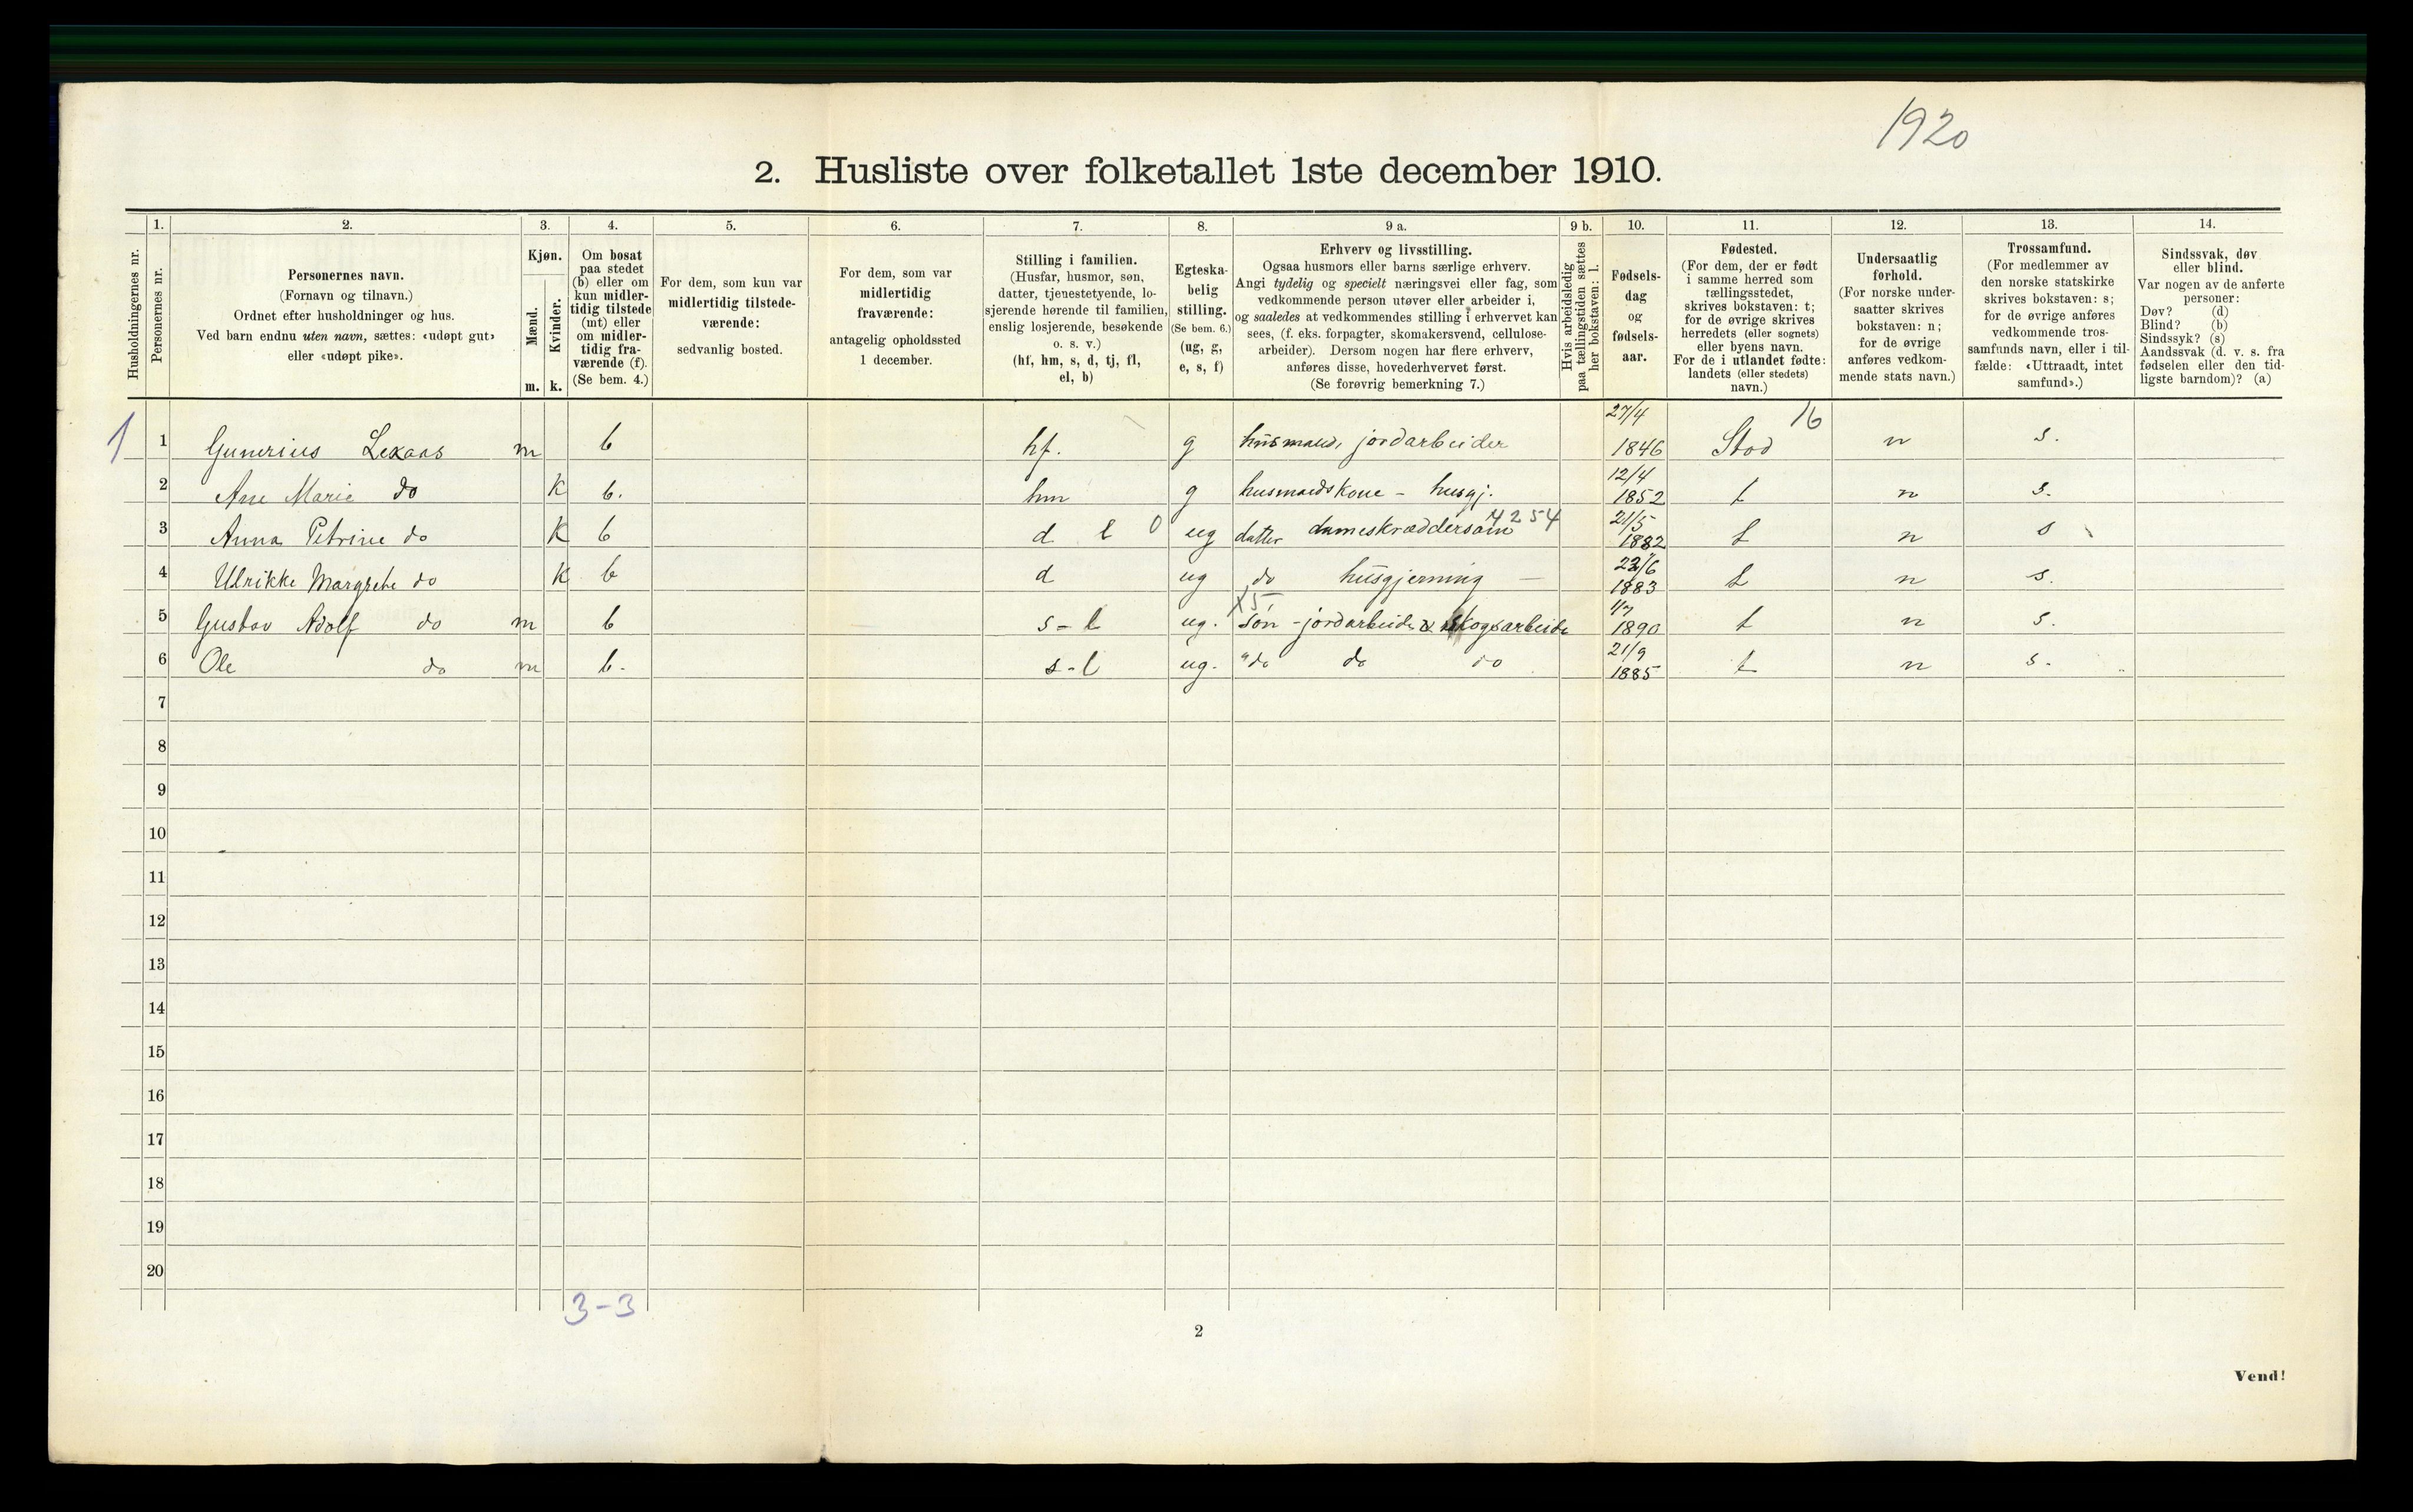 1920
2. Husliste over folketallet 1ste december 1910.
Husholdningernes nr.
1.
Personernes nr.
2.
Personernes navn.
(Fornavn og tilnavn.)
Ordnet efter husholdninger og hus.
Ved barn endnu uten navn, sættes: «udøpt gut»
eller «udøpt pike».
3.
Kjøn.
Mænd.
m.
Kvinder.
k.
4.
Om bosat
paa stedet
(b) eller om
kun midler-
tidig tilstede
(mt) eller
om midler-
tidig fra-
værende (f).
(Se bem. 4.)
5.
For dem, som kun var
midlertidig tilstede-
værende:
sedvanlig bosted.
6.
For dem, som var
midlertidig
fraværende:
antagelig opholdssted
1 december.
7.
Stilling i familien.
(Husfar, husmor, søn,
datter, tjenestetyende, lo-
sjerende hørende til familien,
enslig losjerende, besøkende
o. s. v.)
(hf, hm, s, d, tj, fl,
el, b)
8.
Egteska-
belig
stilling.
(Se bem. 6.)
(ug, g,
e, s, f)
9 a.
Erhverv og livsstilling.
Ogsaa husmors eller barns særlige erhverv.
Angi tydelig og specielt næringsvei eller fag, som
vedkommende person utøver eller arbeider i,
og saaledes at vedkommendes stilling i erhvervet kan
sees, (f. eks. forpagter, skomakersvend, cellulose-
arbeider). Dersom nogen har flere erhverv,
anføres disse, hovederhvervet først.
(Se forøvrig bemerkning 7.)
9 b.
Hvis arbeidsledig
paa tællingstiden sættes
her bokstaven: l.
10.
Fødsels-
dag
og
fødsels-
aar.
11.
Fødested.
(For dem, der er født
i samme herred som
tællingsstedet,
skrives bokstaven: t;
for de øvrige skrives
herredets (eller sognets)
eller byens navn.
For de i utlandet fødte:
landets (eller stedets)
navn.)
12.
Undersaatlig
forhold.
(For norske under-
saatter skrives
bokstaven: n;
for de øvrige
anføres vedkom-
mende stats navn.)
13.
Trossamfund.
(For medlemmer av
den norske statskirke
skrives bokstaven: s;
for de øvrige anføres
vedkommende tros-
samfunds navn, eller i til-
fælde: «Uttraadt, intet
samfund».)
14.
Sindssvak, døv
eller blind.
Var nogen av de anførte
personer:
Døv? (d)
Blind? (b)
Sindssyk? (s)
Aandssvak (d. v. s. fra
fødselen eller den tid-
ligste barndom)? (a)
27/4 16
1 1 Gunerius Lexaas m b hf. g husmand, jordarbeider 1846 Stod n s.
12/4
2 Ane Marie do K b. hm g husmandskone - husgj. 1852 t n s.
4254 21/5
3 Anna Petrine do K b d l 0 ug datter dameskræddersøm 1882 t n s
6
4 Ulrikke Margrethe do K b d ug do husgjerning — 1883 t n s.
X5, 1/7
5 Gustav Adolf do m b s - l ug. søn - jordarbeider & skogsarbeide 1890 t n s.
21/9
6 Ole do m b. s - l ug. "do do do 1885 t n s.
7
8
9
10
11
12
13
14
15
16
17
18
19
20
3-3
2
Vend!